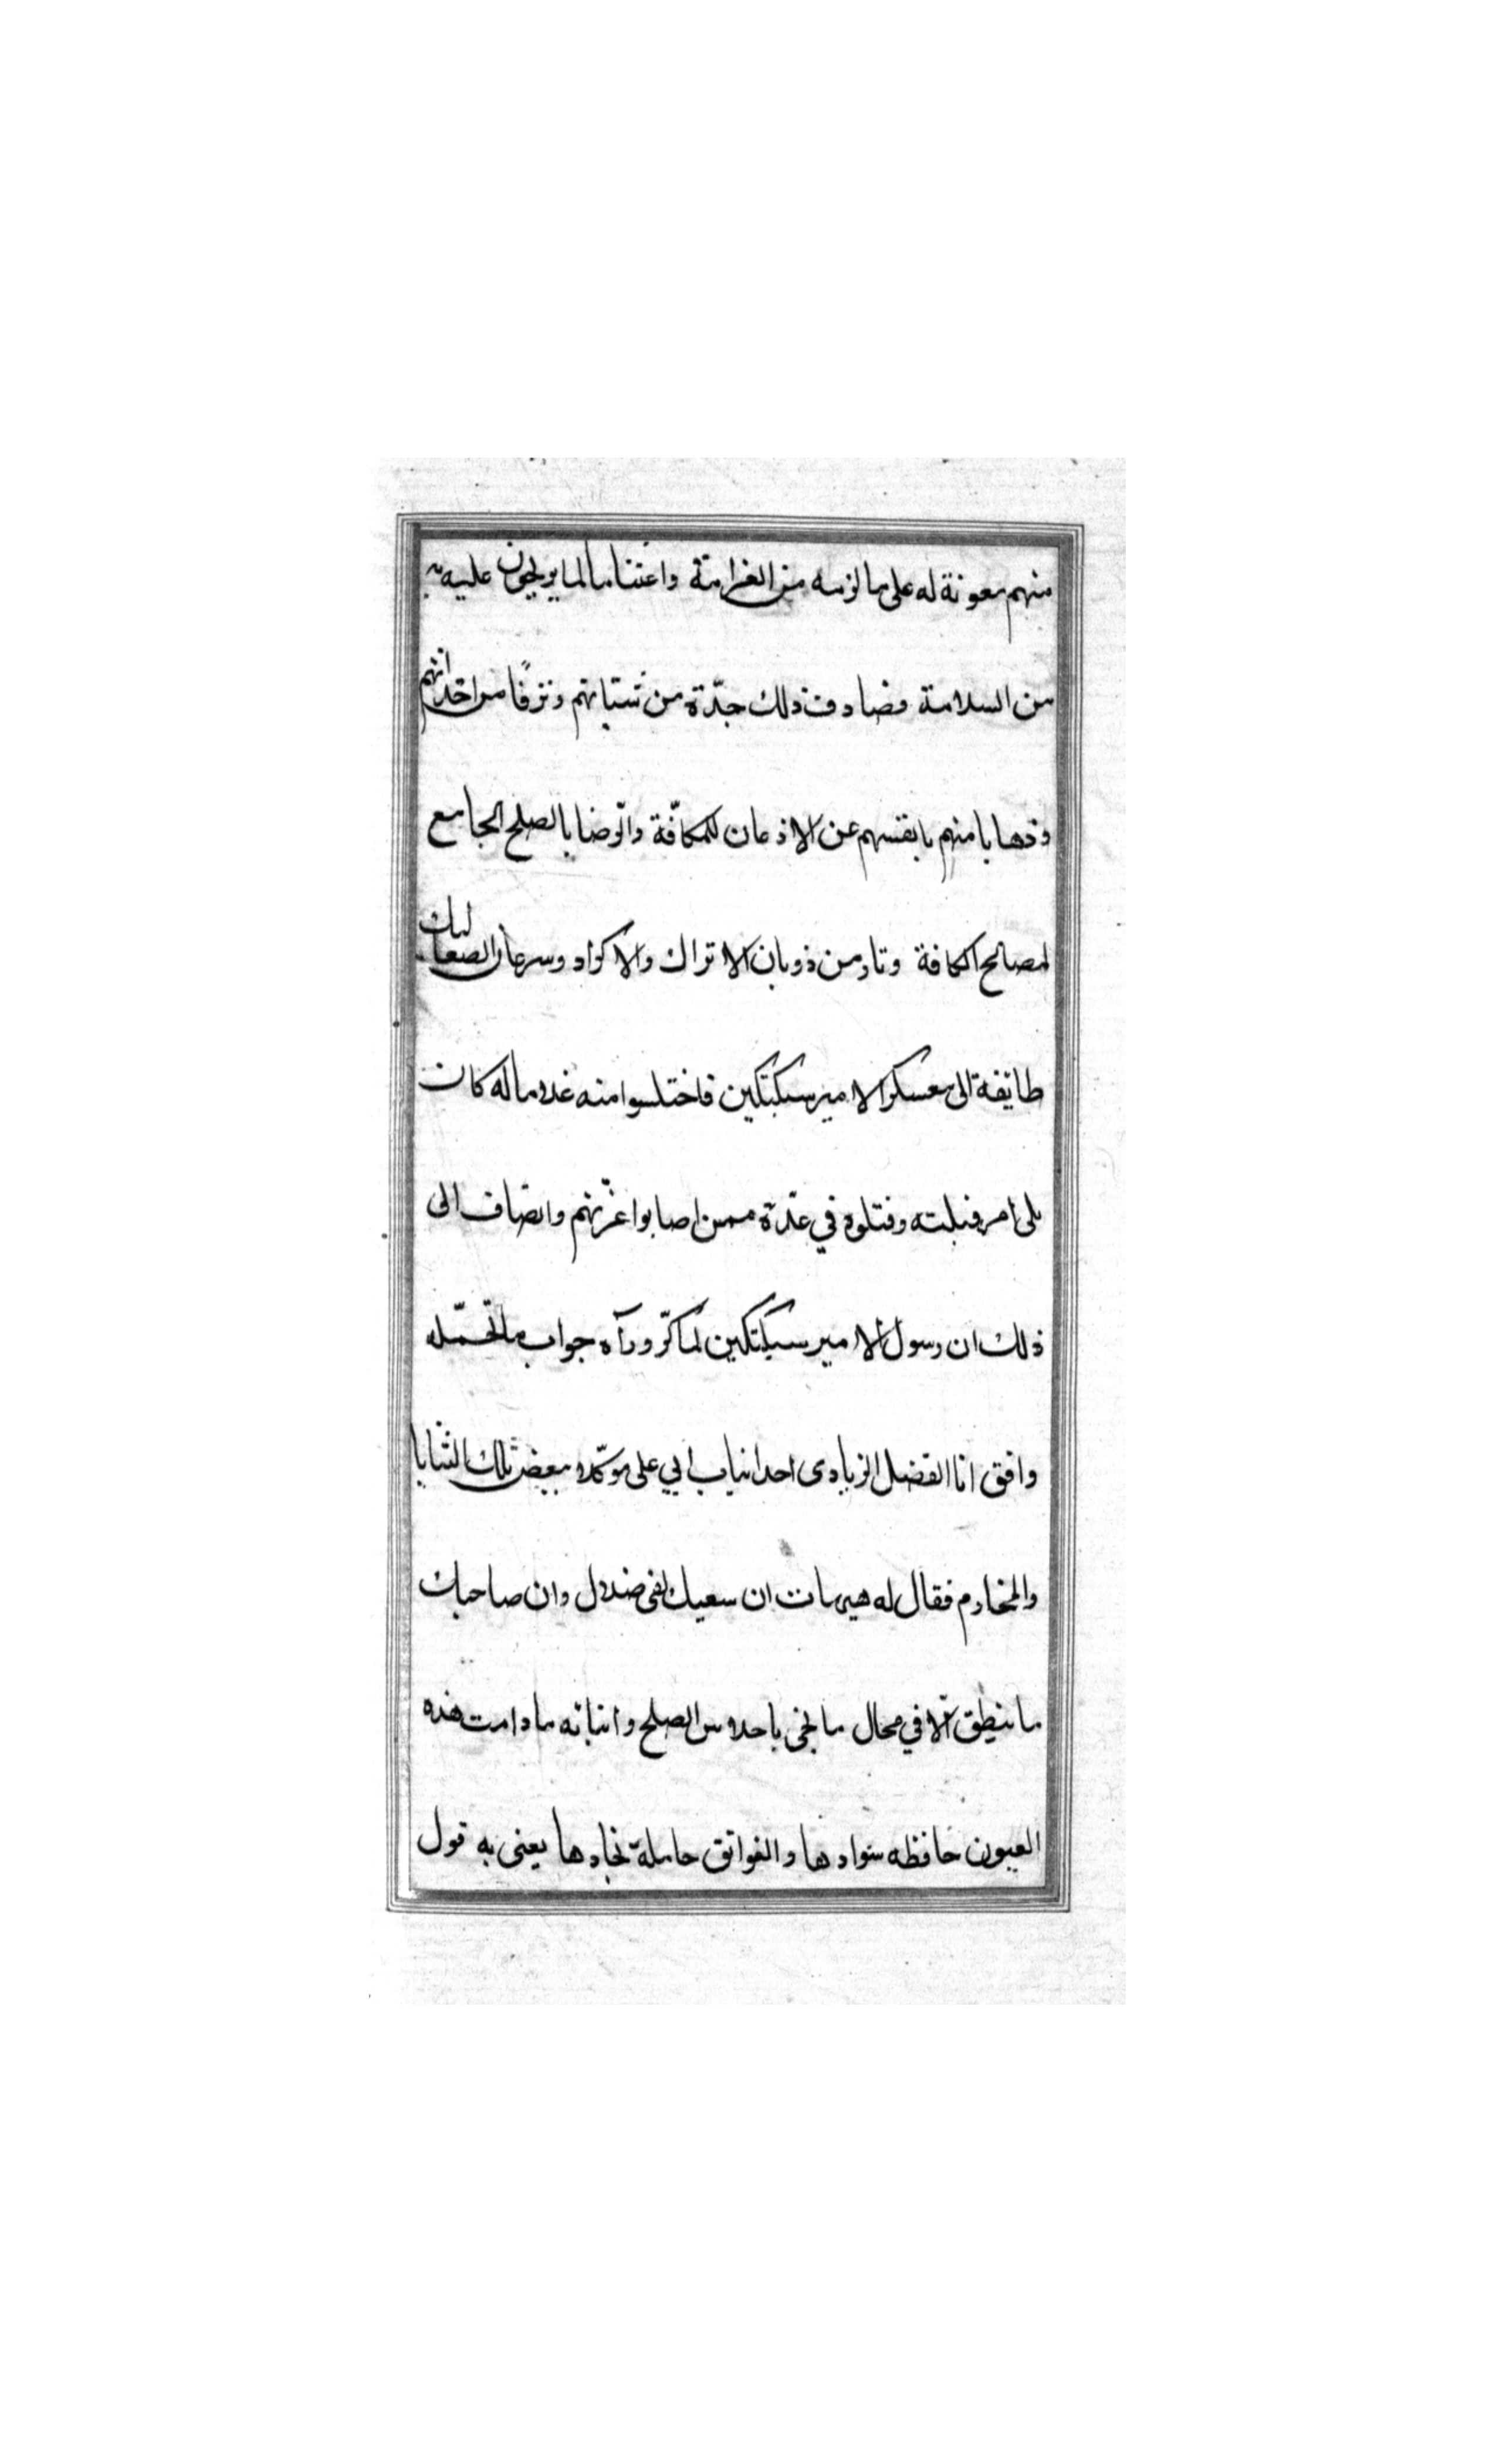 منهم معونة له على ما لزمه من الغرامة واغتناما لما يريحون عليه به
من السلامة فصادف ذلك جدّة من شبانهم ونزقًا من احداثهم
وذهابا منهم بانفسهم عن الاذعان للمكافّة والرّضا بالصلح الجامع
لمصالح الكافة وثار من ذوبان الاتراك والاكراد وسرعان الصعاليك
طائفة الى معسكر الامير سبكتكين فاختلسوا منه غلاما له كان
يلى امر فيلته وقتلوه في عدّة ممن اصابوا غرّتهم وانضاف الى
ذلك ان رسول الامير سبكتكين لما كرّ وراه جواب ما تحمّله
وافق ابا الفضل الزيادى احد انياب ابي على موكلا ببعض تلك الثنايا
والمخارم فقال له هيهات ان سعيك لفى ضلال وان صاحبك
ما ينطق الّا في محال ما نحن باحلاس الصلح وابنائه ما دامت هذه
العيون حافظه سوادها والعواتق حاملة نجادها يعنى به قول